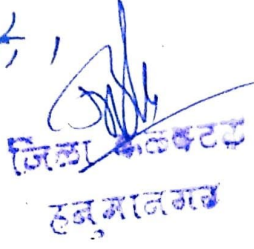 जिला कलक्टर
हनुमानगढ